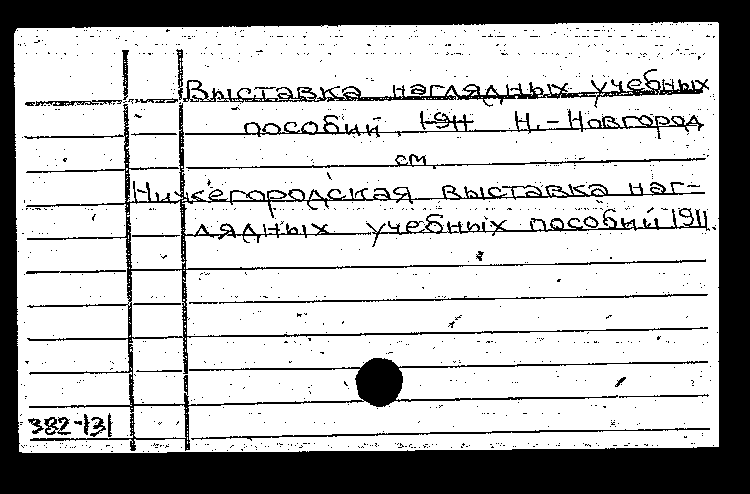 Выставка наглядных учебных
пособий. 1911 Н.-Новгород
см.
Нижегородская выставка наг-
лядных учебных пособий 1911.
382-131